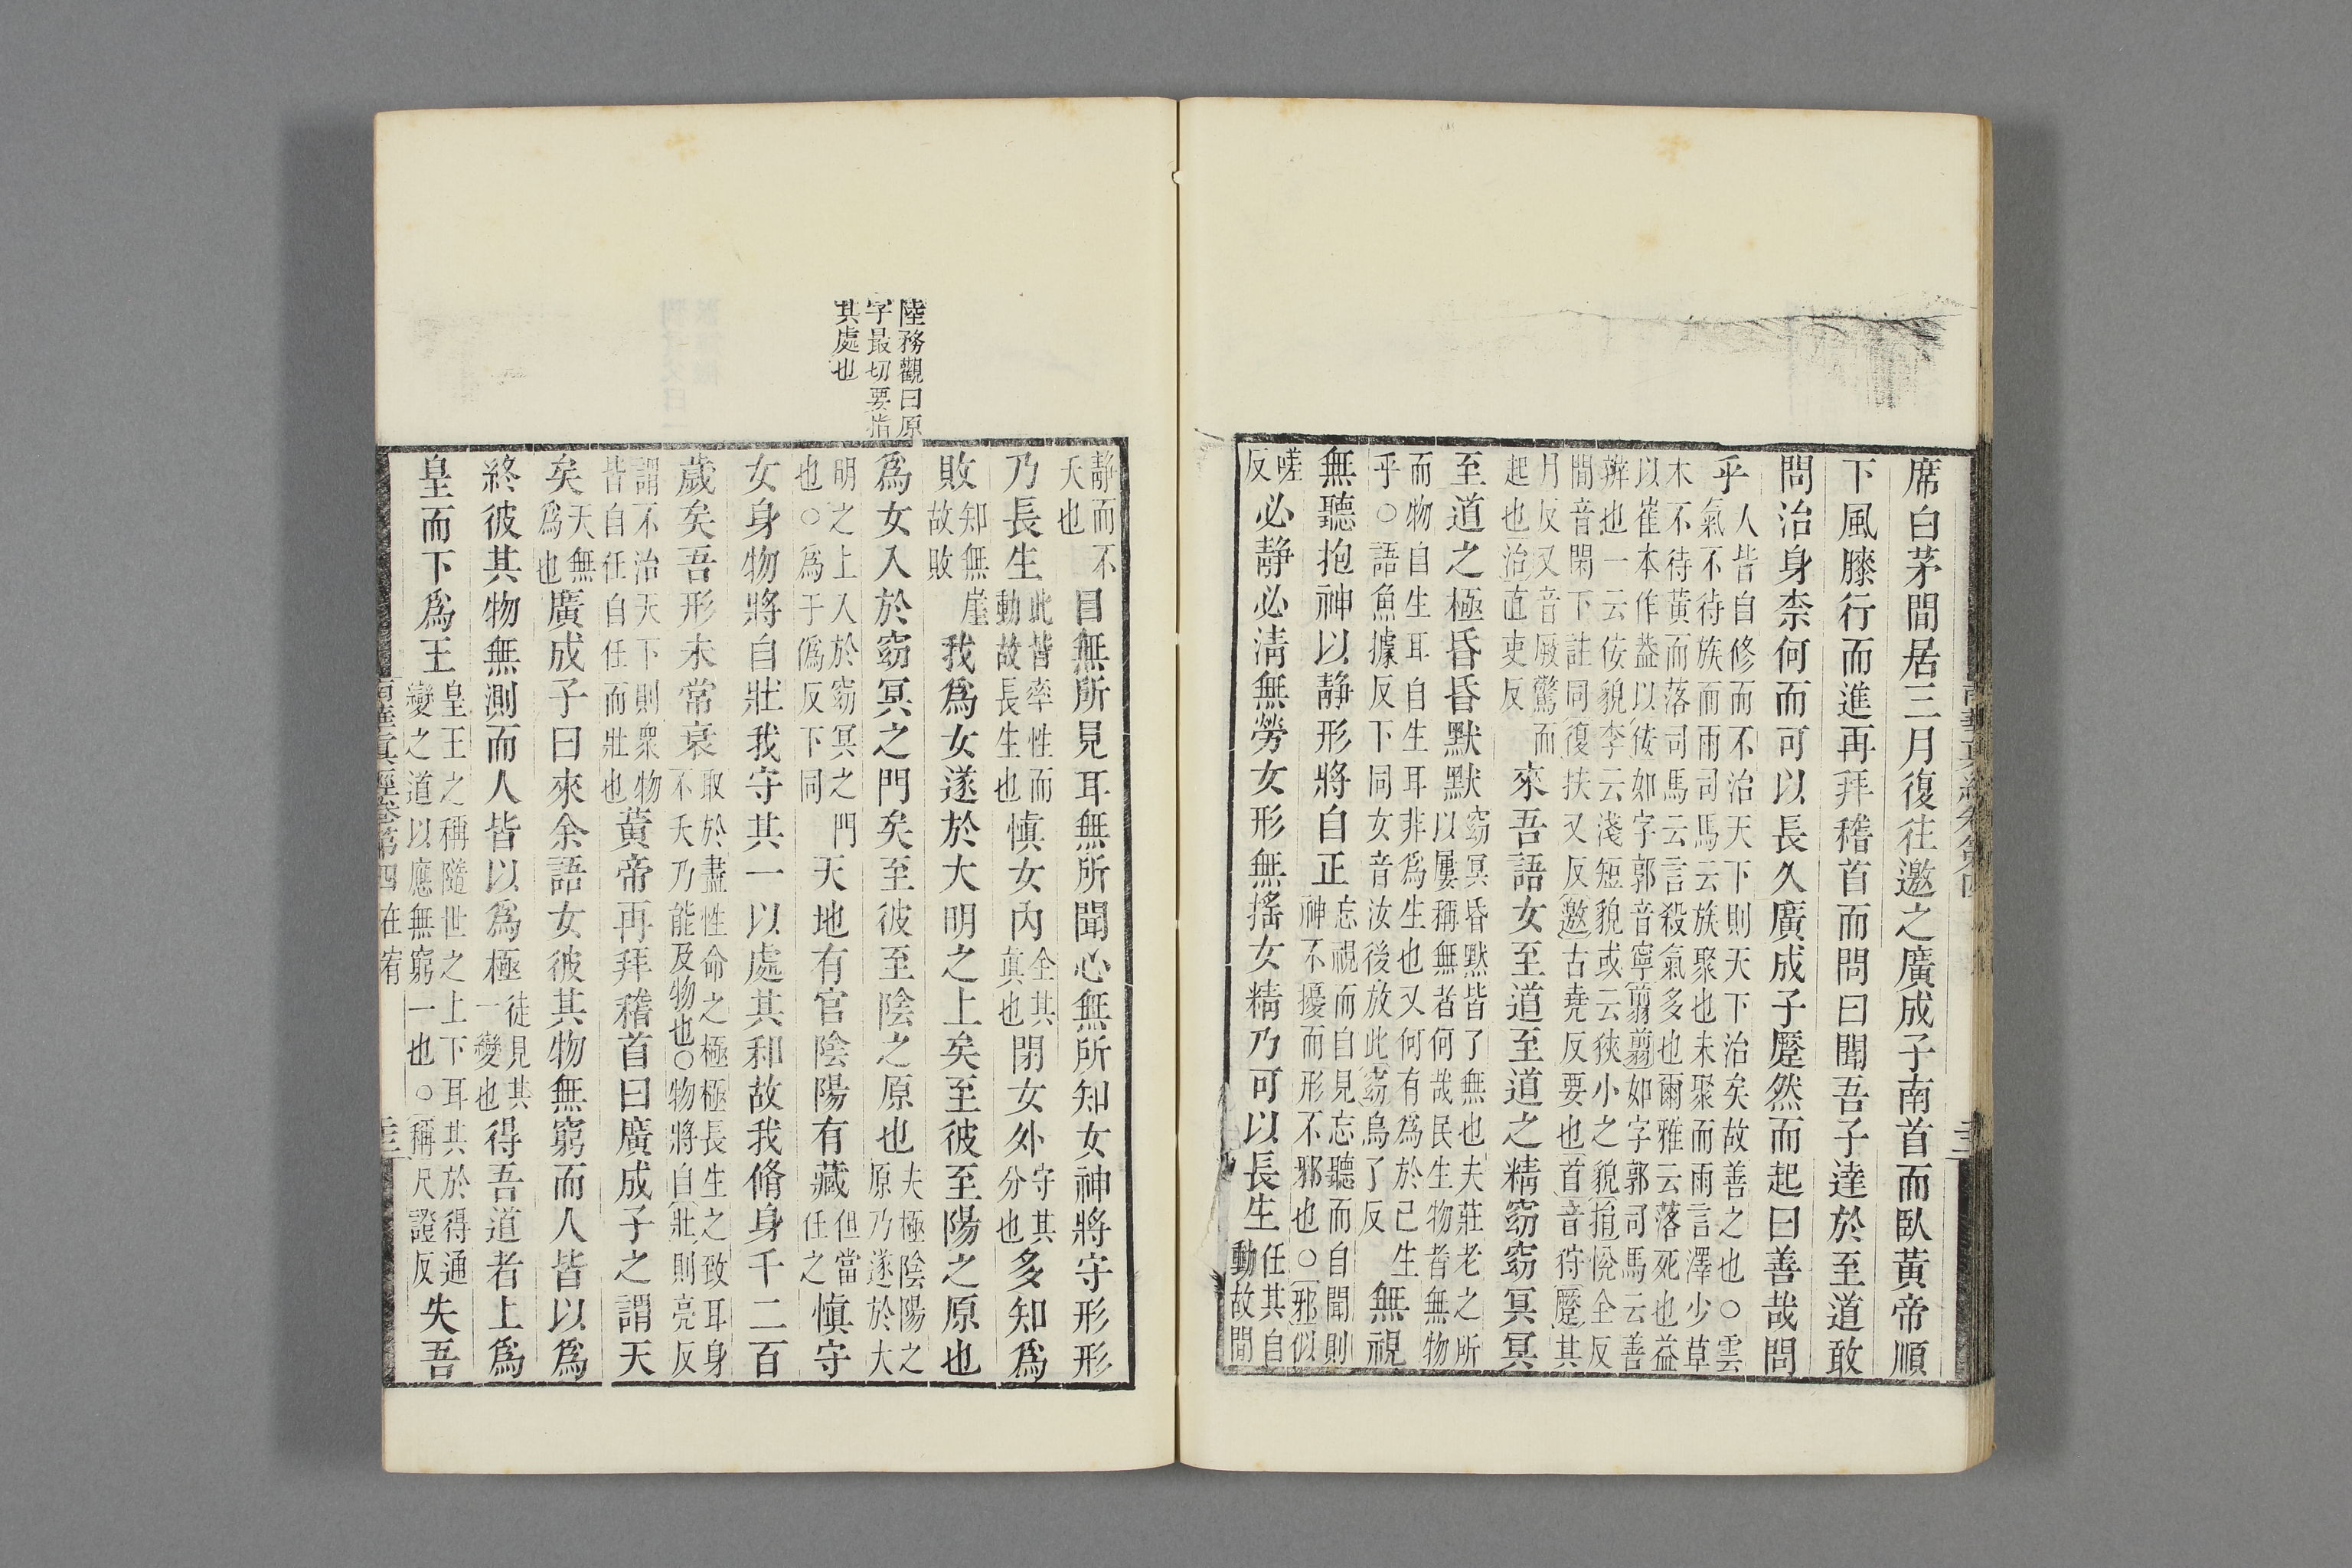 席白茅間居三月復往邀之廣成子南首而臥黃帝順
下風膝行而進再拜稽首而問曰聞吾子達於至道敢
問治身柰何而可以長久廣成子蹷然而起曰善哉問
乎人皆自修而不治天下則天下治矣故善之也○雲
氣不待族而雨司馬云族聚也未聚而雨言澤少草
木不待黃而落司馬云言殺氣多也爾雅云落死也益
以崔本作葢以佞如字郭音寧翦翦如字郭司馬云善
辨也一云佞貌李云淺短貌或云狹小之貌捎悅全反
間音閑下註同復扶又反邀古堯反要也首音狩蹷其
月反又音厥驚而
起也治直吏反
來吾語女至道至道之精窈窈冥冥
至道之極昏昏默默
窈冥昏默皆了無也夫莊老之所
以屢稱無者何哉民生物者無物
而物自生耳自生耳非爲生也又何有爲於已生
乎○語魚據反下同女音汝後放此窈烏了反
無視
無聽抱神以靜形將自正
忘視而自見忘聽而自聞則
神不擾而形不邪也○邪似
嗟
反
必靜必淸無勞女形無搖女精乃可以長生
任其自
動故間
靜而不
夭也
目無所見耳無所聞心無所知女神將守形形
乃長生
此皆率性而
動故長生也
愼女內
全其
眞也
閉女外
守其
分也
多知爲
敗
知無崖
故敗
我爲女遂於大明之上矣至彼至陽之原也
爲女入於窈冥之門矣至彼至陰之原也
夫極陰陽之
原乃遂於大
明之上入於窈冥之門
也○爲于僞反下同
天地有官陰陽有藏
但當
任之
愼守
女身物將自壯我守其一以處其和故我脩身千二百
歲矣吾形未常衰
取於盡性命之極極長生之致耳身
不夭乃能及物也○物將自壯則亮反
謂不治天下則衆物
皆自任自任而壯也
黃帝再拜稽首曰廣成子之謂天
矣
天無
爲也
廣成子曰來余語女彼其物無窮而人皆以爲
終彼其物無測而人皆以爲極
徒見其
一變也
得吾道者上爲
皇而下爲王
皇王之稱隨世之上下耳其於得通
變之道以應無窮一也○稱尺證反
失吾
陸務觀曰原
字最切要指
其處也
南華眞經卷第四 在宥